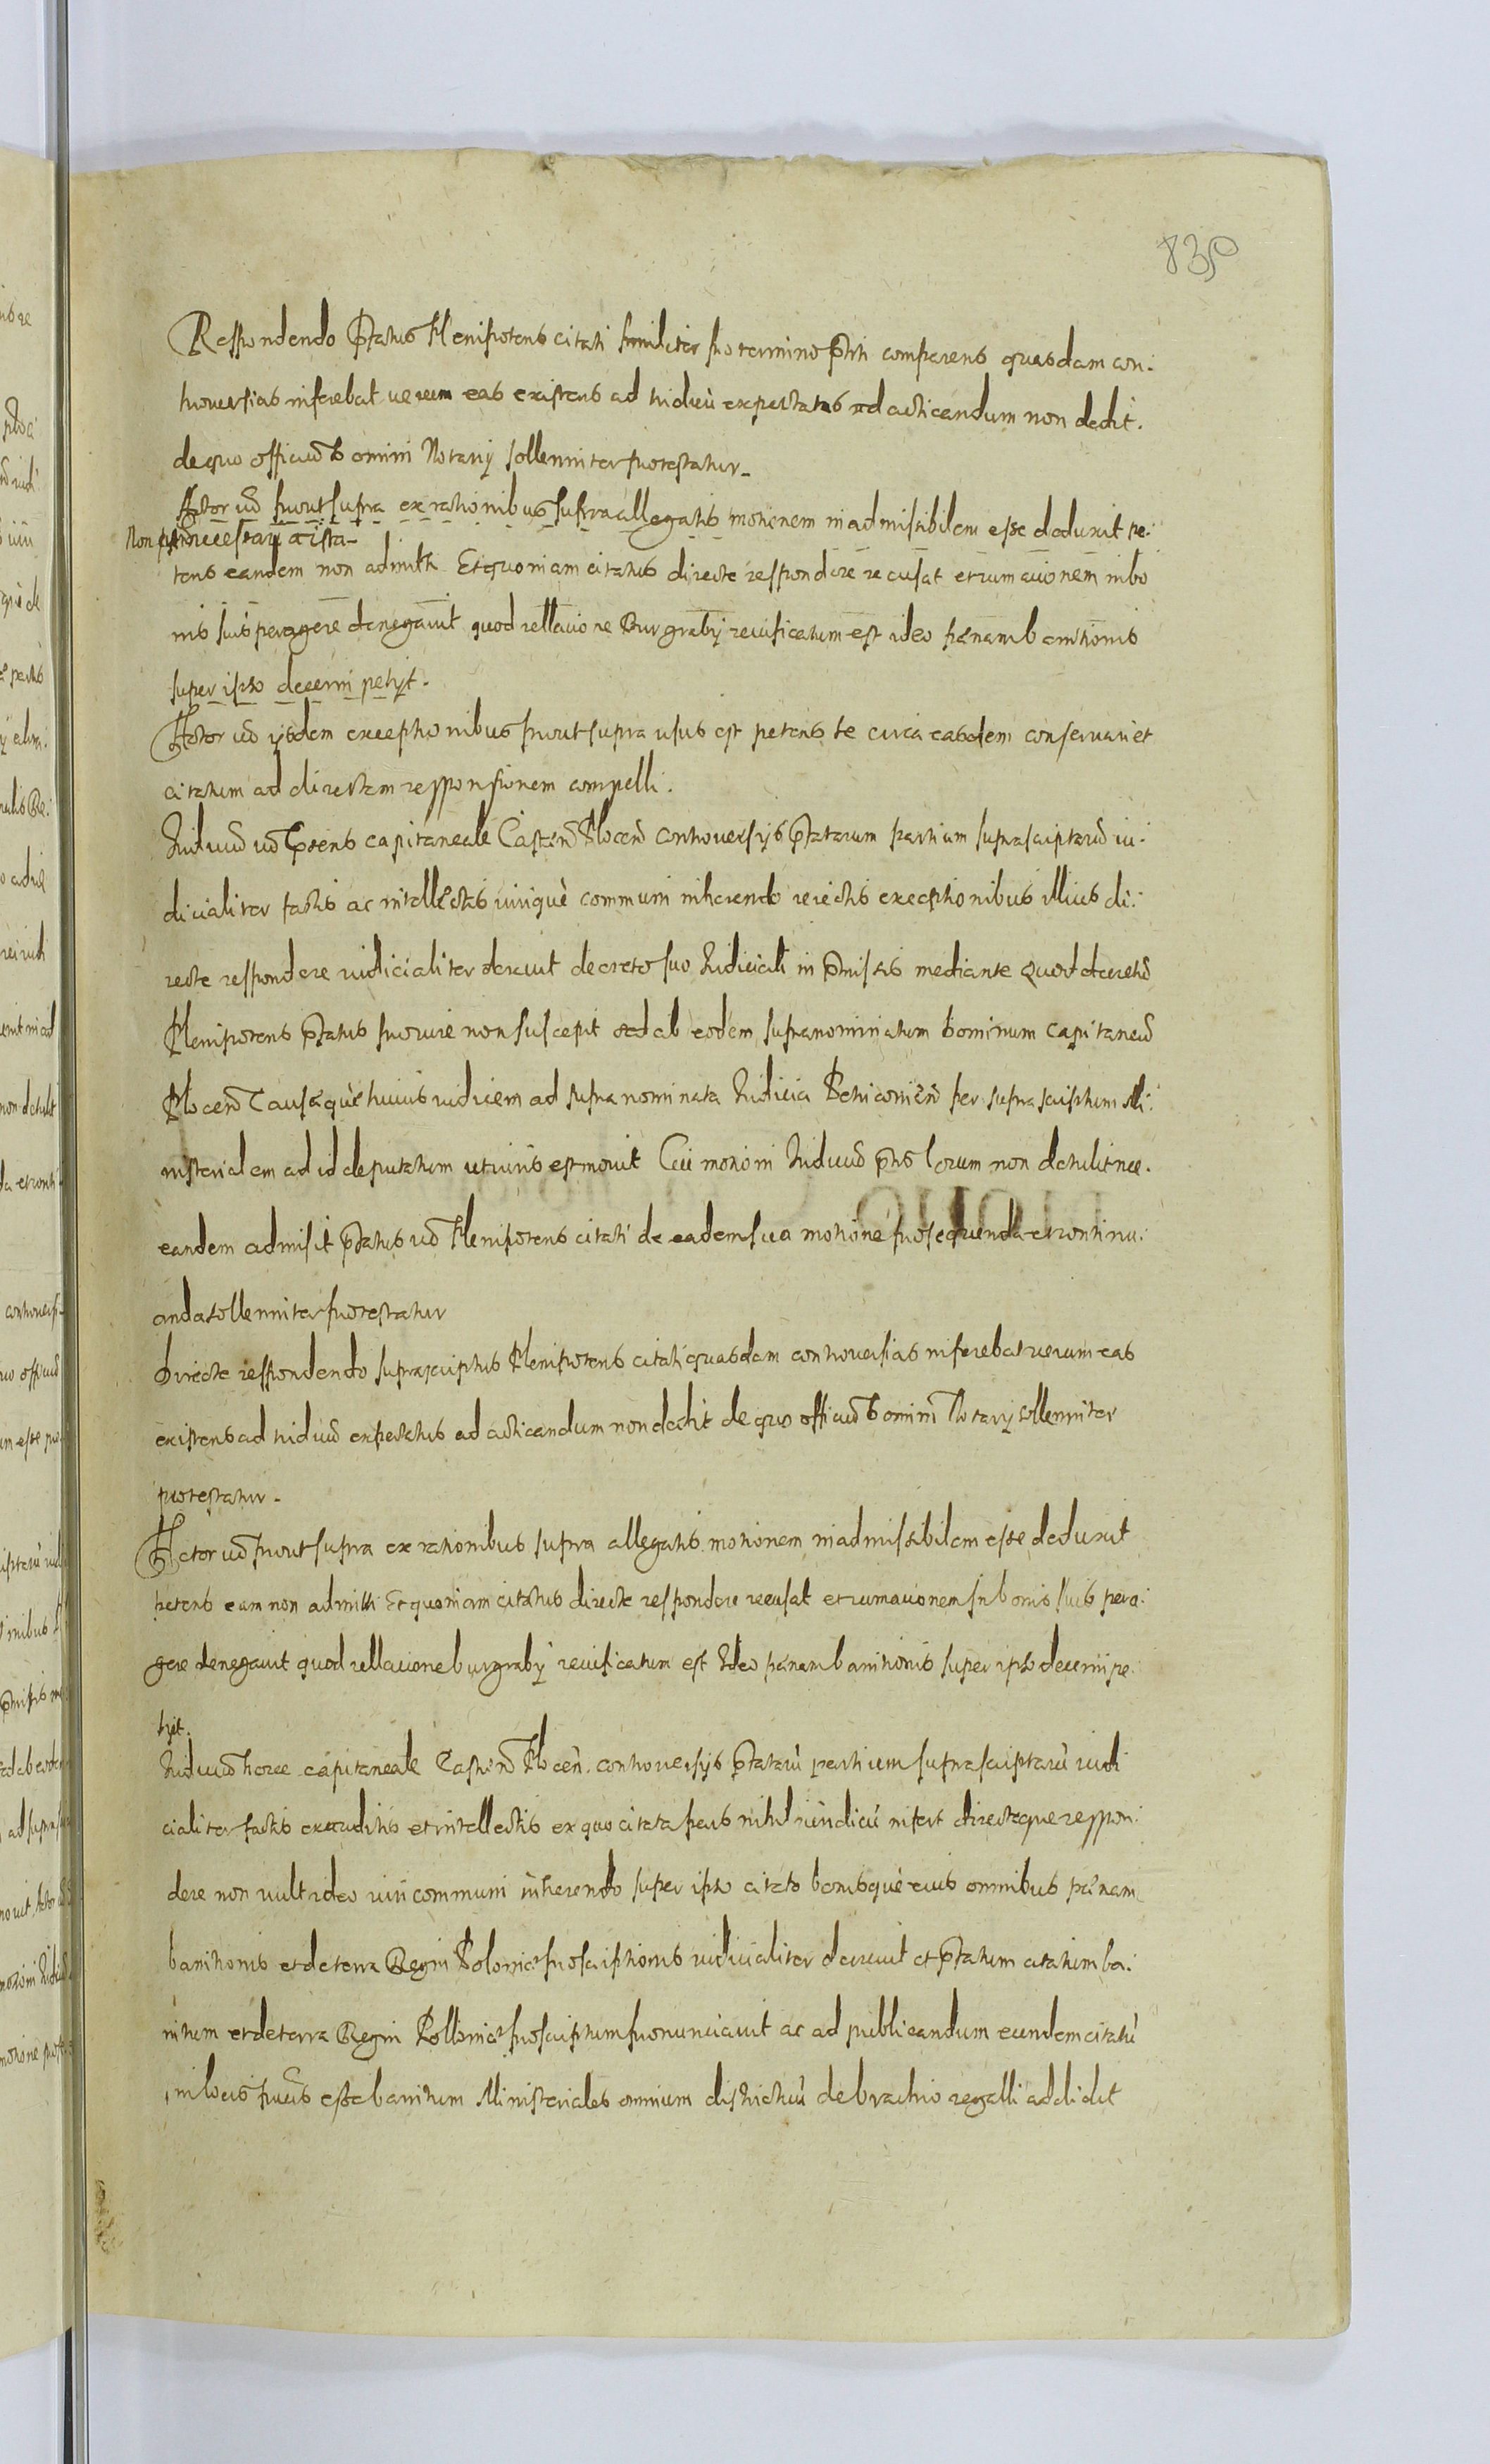 830
Respondendo p͞tatus Plenipotens citati similiter pro termino p͞nti comparens quasdam con:
trouersias inferebat uerum eas existens ad iudicÿ expectatus ad acticandum non dedit.
de quo officiū Domini Notarÿ sollenniter protestatur
Actor uō prout supra ex rationibus supra allegatis motionem inadmissibilem esse deduxit pe:
Non necessaria ista
tens eandem non admitti. Et quoniam citatus directe respondere recusat et rumacionem in bo
nis suis peragere denegauit quod rellacione Burgrabÿ reuificatum est ideo pænam banitionis
super ipso decerni petÿt.
Actor uō ÿsdem exceptionibus prout supra usus est petens se circa easdem conseruari et
citatum ad directam responsionem compelli.
Iudiciū uō p͞sens capitaneale Castrēn Plocēn controuersÿs p͞tatarum partium suprascriptarū iu:
dicialiter factis ac intellectis iuriquè communi inherendo reiectis exceptionibus illius di:
recte respondere iudicialiter decreuit decreto suo Iudiciali in p͞missis mediante quod decretū
Plenipotens p͞tatus pro iure non suscepit sed ab eodem supranominatum Dominum Capitaneū
Plocēn Causæquè huius iudicem ad supra nominata Iudicia per suprascriptum Mi:
nisterialem ad id deputatum uti iuris est mouit Cui motioni Iudiciū p͞ns locum non detulit nec.
eandem admisit p͞tatus uō Plenipotens citati de eadem sua motione prosequenda et continu:
anda sollenniter protestatur
Directe respondendo suprascriptus Plenipotens citati quasdam controuersias inferebat uerum eas
existens ad iudiciū expectatus ad acticandum non dedit de quo officiū Domini Notarÿ sollenniter
protestatur.
Actor uō prout supra ex rationibus supra allegatis motionem inadmissibilem esse deduxit
petens eam non admitti Et quoniam citatus directe respondere recusat et rumacionem in bonis suis pera:
gere denegauit quod rellacione burgrabÿ reuificatum est Ideo pænam banitionis super ipso decerni pe:
tÿt.
Iudiciū hocce capitaneale Castrēn Plocēn. controuersÿs p͞tatarū partium suprascriptarū iudi
cialiter factis exauditis et intellectis ex quo citata pars nihil iuridicū infert directeque respon:
dere non uult ideo iuri communi inherendo super ipso citato bonisquè eius omnibus pænam
banitionis et de terra Regni Poloniæ proscriptionis iudicialiter decreuit et p͞tatum citatum ba:
nitum et de terra Regni Polloniæ proscriptum pronunciauit ac ad publicandum eundem citatū
in locis esse banitum Ministeriales omnium districtuū de brachio regalli addidit